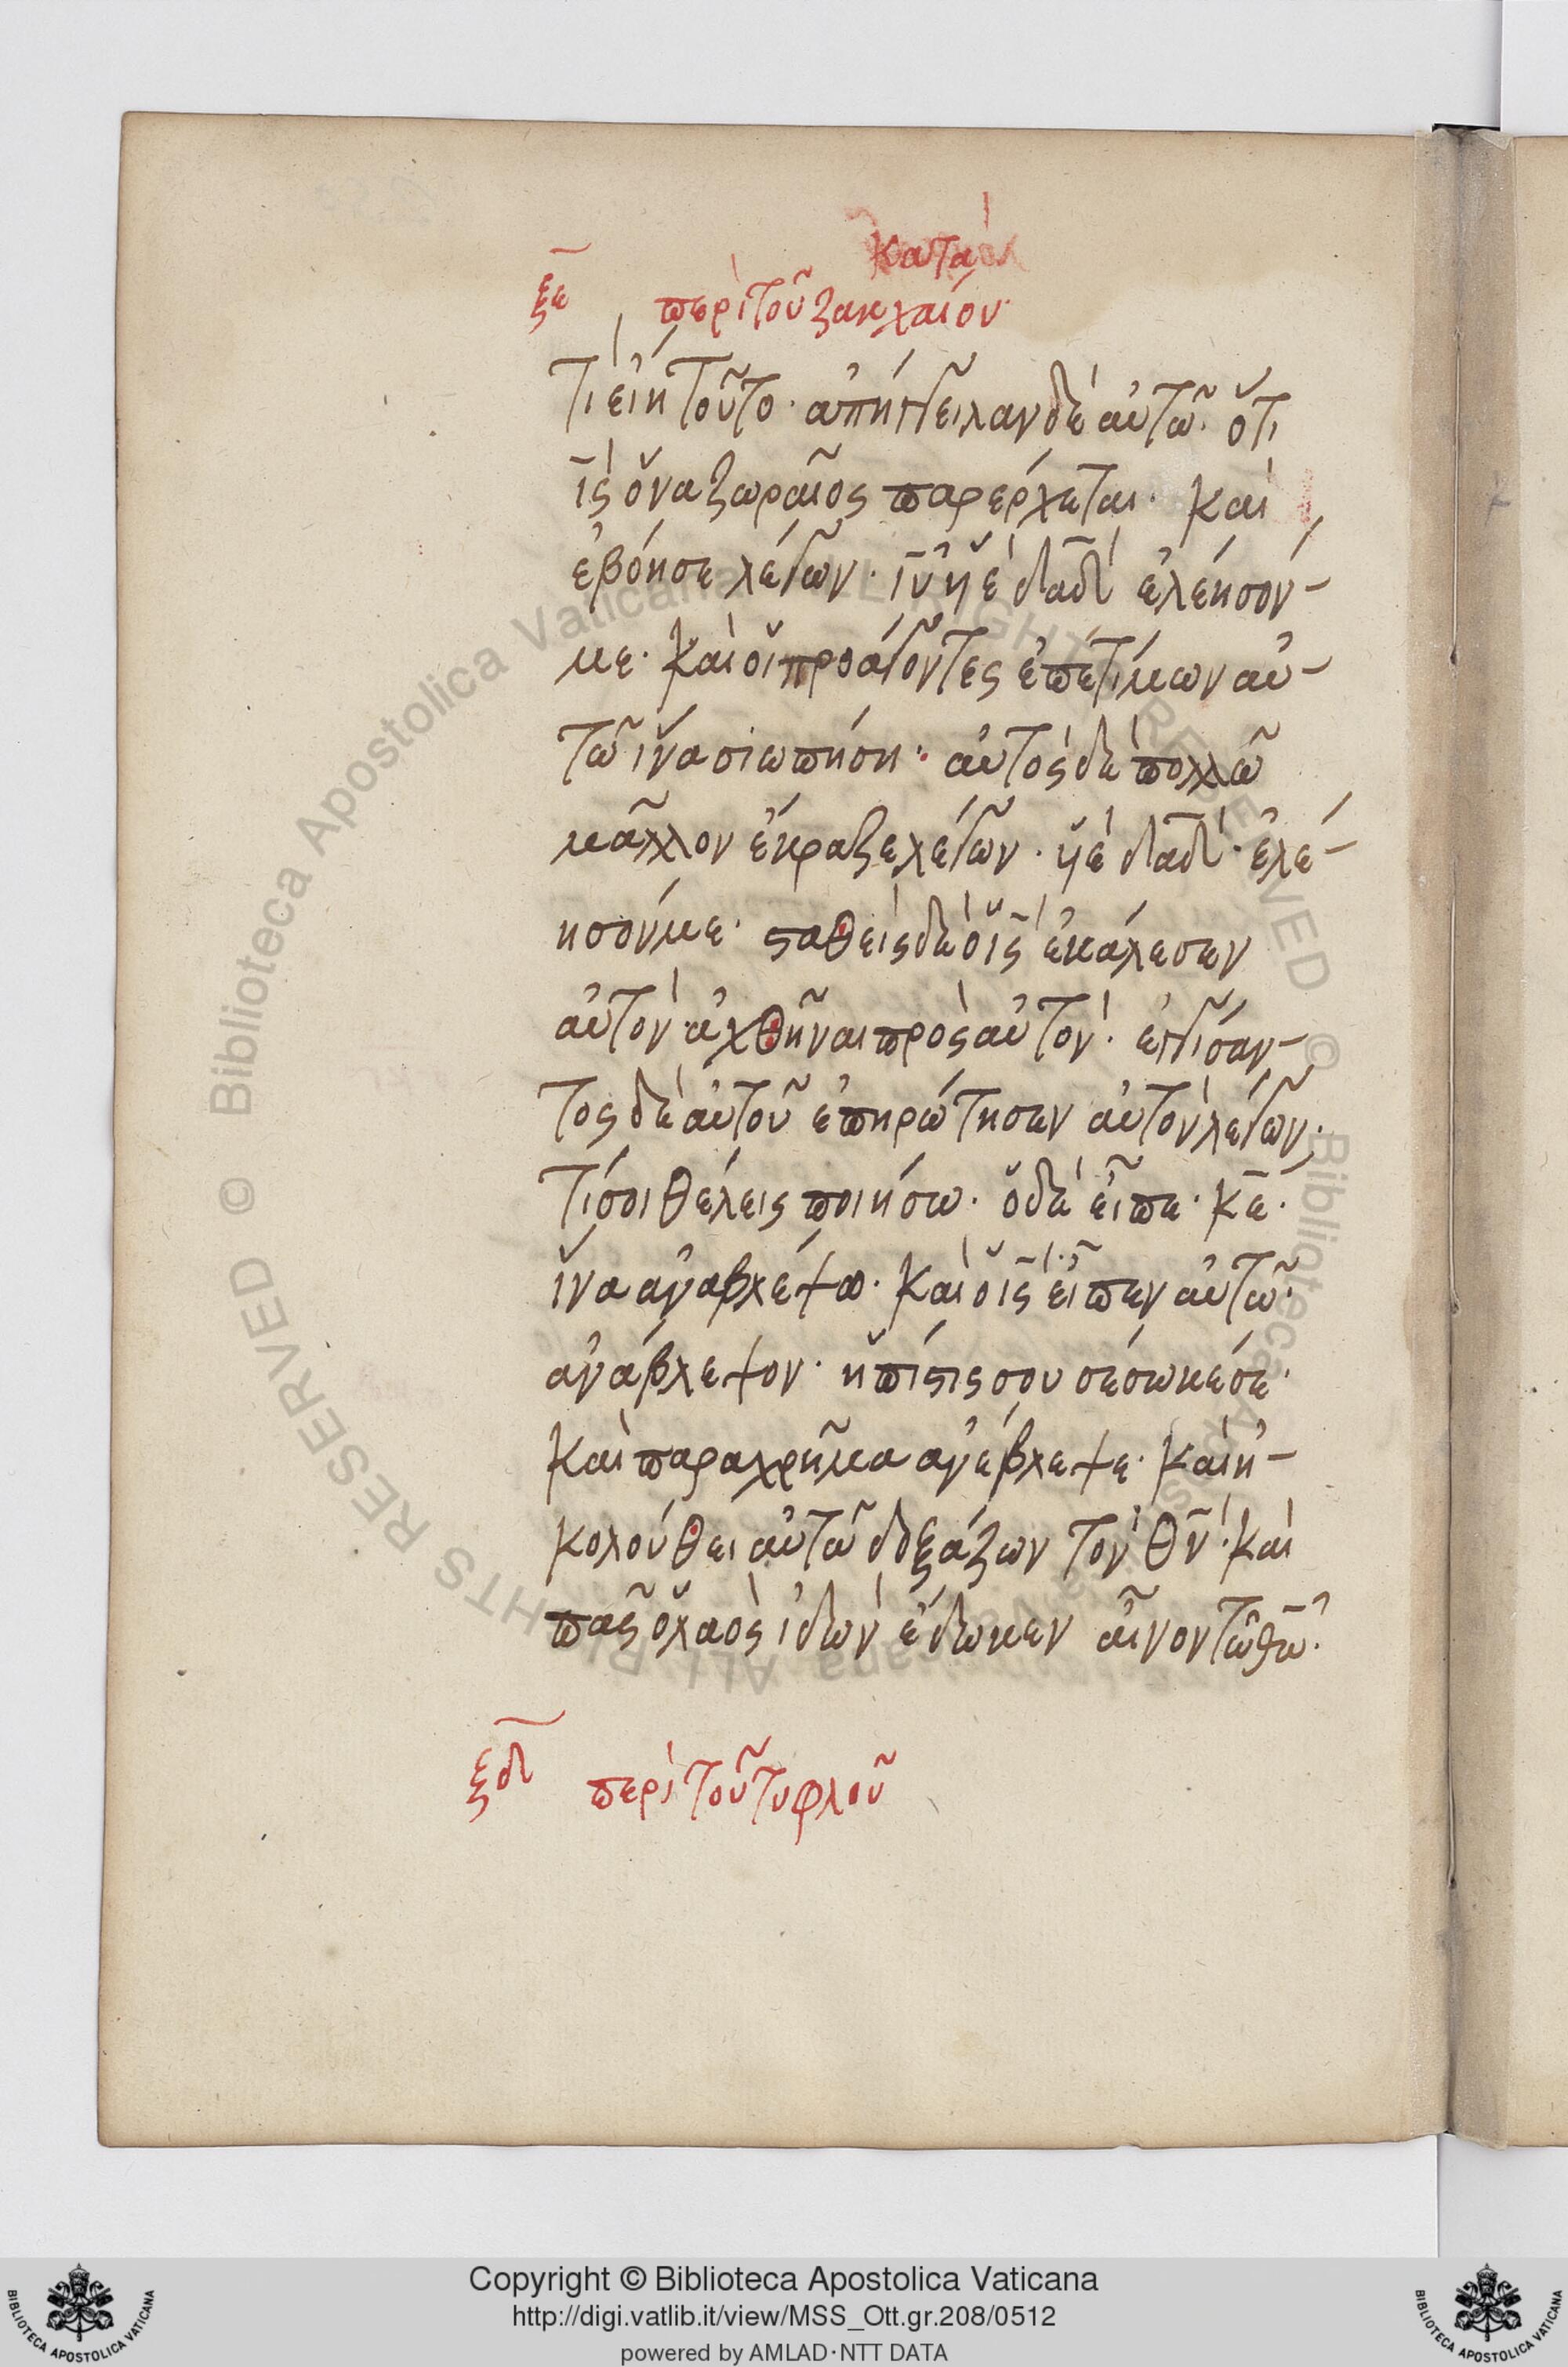 κατα
ξε περὶ τοῦ ζακχαίου·
τί εἴη τοῦτο· ἀπήγγειλαν δὲ αὐτῶ· ὅτι
ις ὁ ναζωραῖος παρέρχεται· καὶ
ἐβόησε λέγων· ιυ υἱὲ δαδ ἐλέησόν
με· καὶ οἱ προάγοντες ἐπετίμων αὐ-
τῶ ἵνα σιωπήση· αὐτὸς δὲ πολλῶ
μᾶλλον ἔκραζε λέγων· υἱὲ δαδ· ἐλέ-
ησόν με· σταθεὶς δὲ ὁ ις ἐκάλεσεν
αὐτὸν ἀχθῆναι πρὸς αὐτόν· ἐγγίσαν-
τος δὲ αὐτοῦ ἐπηρώτησεν αὐτὸν λέγων·
τί σοι θέλεις ποιήσω· ὁ δὲ εἶπε· κε·
ἵνα ἀναβλέψω· καὶ ὁ ις εἶπεν αὐτῶ·
ἀνάβλεψον· ἡ πίστις σου σέσωκέ σε·
καὶ παραχρῆμα ἀνέβλεψε· καὶ ἠ-
κολούθει αὐτῶ δοξάζων τὸν θν· καὶ
πᾶς ὁ λαὸς ἰδὼν ἔδωκεν αἶνον τῶ θω·
ξδ περὶ τοῦ τυφλοῦ
© Biblioteca Apostolica Vaticana ALL RIGHTS RESERVED
© Biblioteca Apostolica Vaticana ALL RIGHTS RESERVED
Copyright © Biblioteca Apostolica Vaticana
http://digi.vatlib.it/view/MSS_Ott.gr.208/0512
powered by AMLAD·NTT DATA
BIBLIOTECA APOSTOLICA VATICANA
BIBLIOTECA APOSTOLICA VATICANA